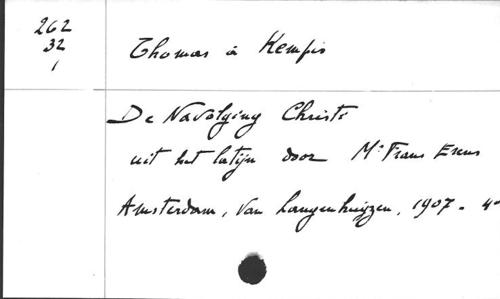 262
32
1
Thomas à Kempis
De Navolging Christi
uit het latijn door Mr Frans Erens
Amsterdam, Van Langenhuyzen, 1907. 4°